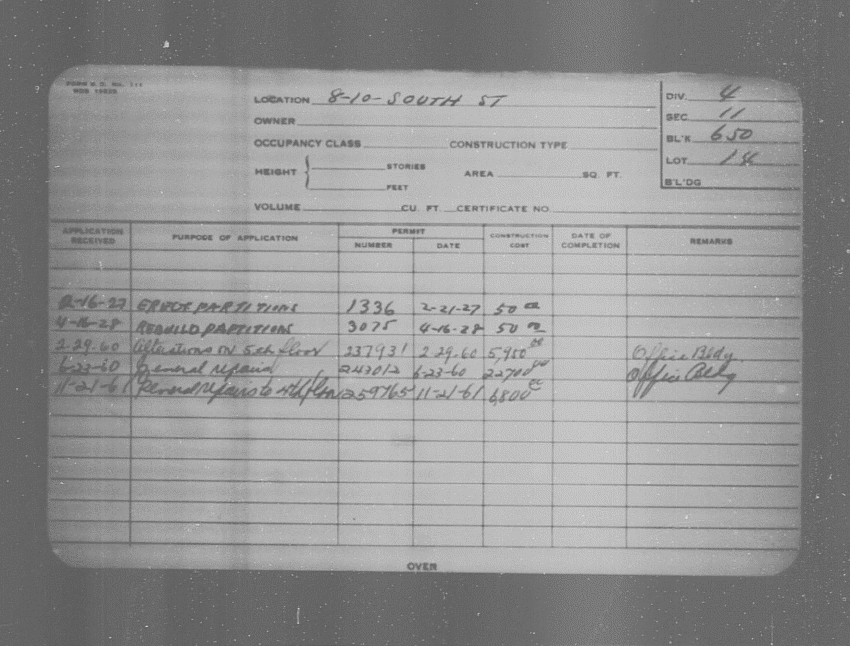 LOCATION 8-10-SOUTH ST
OWNER
OCCUPANCY CLASS CONSTRUCTION TYPE
HEIGHT STORIES FEET AREA SQ. FT.
VOLUME CU. FT. CERTIFICATE NO.
DIV. 4
SEC. 11
BL'K 650
LOT 14
B'L'DG
APPLICATION RECEIVED PURPOSE OF APPLICATION PERMIT NUMBER DATE CONSTRUCTION COST DATE OF COMPLETION REMARKS
2-16-27 ERECT PARTITIONS 1336 2-21-27 50 00
4-16-28 REBUILD PARTITIONS 3075 4-16-28 50 00
2-29-60 Alterations on 5th floor 237931 2-29-60 5,950 00 Office Bldg.
6-23-60 General repairs 243012 6-23-60 22700 00 Office Bldg
11-21-61 General repairs to 4th floor 259765 11-21-61 6,800 00
OVER